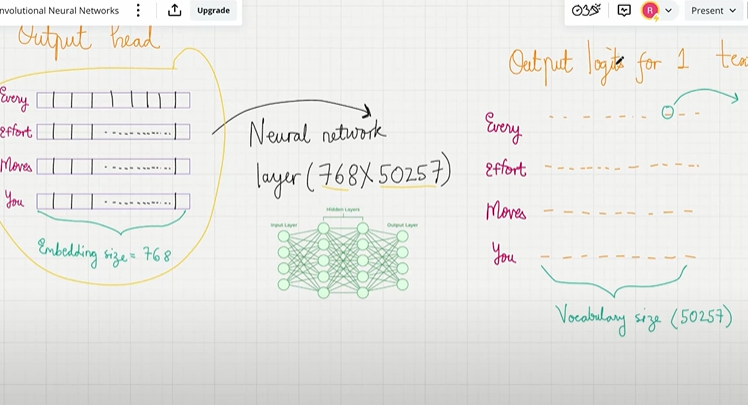 nvolutional Neural Networks
Upgrade
Present
Output head
Every
Effort
Moves
You
Embedding size = 768
Neural network
layer (768X50257)
Hidden Layers
Input Layer
Output Layer
Output logits for 1
Every
Effort
Moves
You
Vocabulary size (50257)